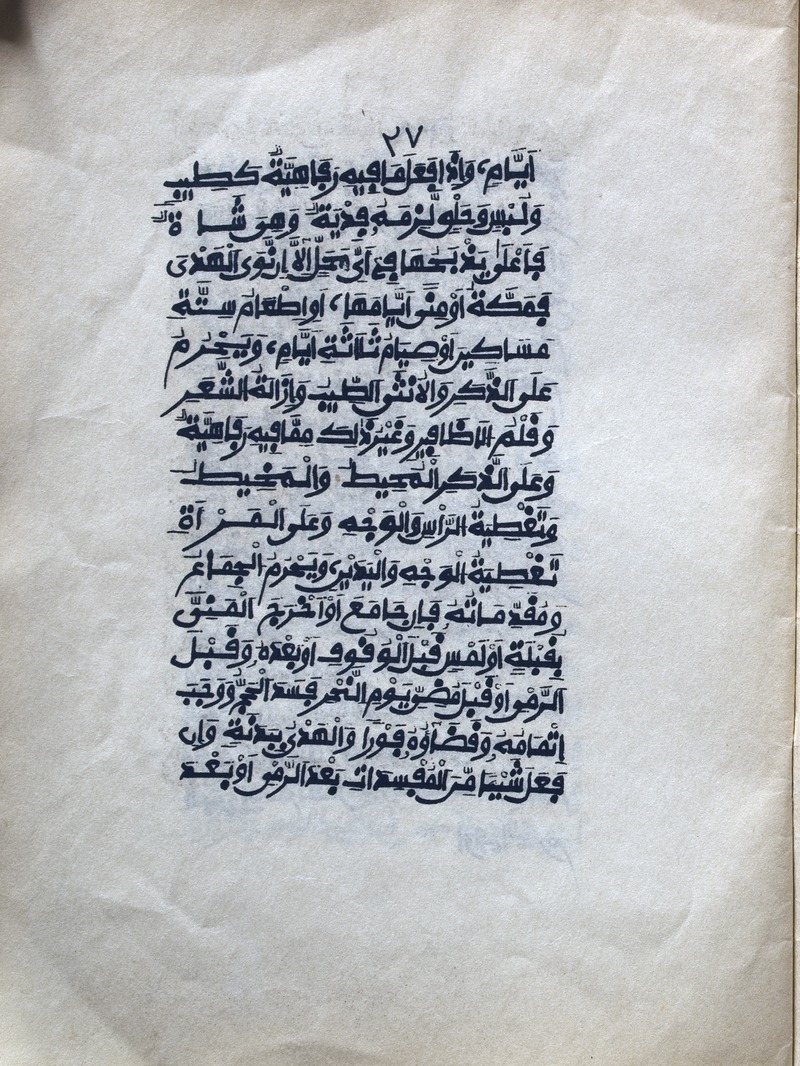 ٢٧
أَيَّامٍ، وَإِذَا فَعَلَ مَا فِيهِ رَفَاهِيَّةٌ كَطِيبٍ
وَلُبْسٍ وَحَلْقٍ لَزِمَهُ فِدْيَةٌ وَهِيَ شَاةٌ
فَأَعْلَى يَذْبَحُهَا فِي أَيِّ مَحَلٍّ إِلَّا إِن نَّوَى الْهَدْيَ
فَمَكَّةُ أَوْ مِنًى أَيَّامَهَا، أَوْ إِطْعَامُ سِتَّةِ
مَسَاكِينَ أَوْ صِيَامُ ثَلَاثَةِ أَيَّامٍ، وَيَحْرُمُ
عَلَى الذَّكَرِ وَالْأُنْثَى الطِّيبُ وَإِزَالَةُ الشَّعَرِ
وَقَلْمُ الْأَظَافِرِ وَغَيْرُ ذَلِكَ مِمَّا فِيهِ رَفَاهِيَّةٌ
وَعَلَى الذَّكَرِ الْمُحِيطُ وَالْمَخِيطُ
وَتَغْطِيَةُ الرَّأْسِ وَالْوَجْهِ وَعَلَى الْمَرْأَةِ
تَغْطِيَةُ الْوَجْهِ وَالْيَدَيْنِ، وَيَحْرُمُ الْجِمَاعُ
وَمُقَدِّمَاتُهُ فَإِن جَامَعَ أَوْ أَخْرَجَ الْمَنِيَّ
بِقُبْلَةٍ أَوْ لَمْسٍ قَبْلَ الْوُقُوفِ أَوْ بَعْدَهُ وَقَبْلَ
الرَّمْيِ أَوْ قَبْلَ مُضِيِّ يَوْمِ النَّحْرِ فَسَدَ الْحَجُّ وَوَجَبَ
إِتْمَامُهُ وَقَضَاؤُهُ فَوْرًا وَالْهَدْيُ بَدَنَةٌ وَإِن
فَعَلَ شَيْئًا مِّنَ الْمُفْسِدَاتِ بَعْدَ الرَّمْيِ أَوْ بَعْدَ